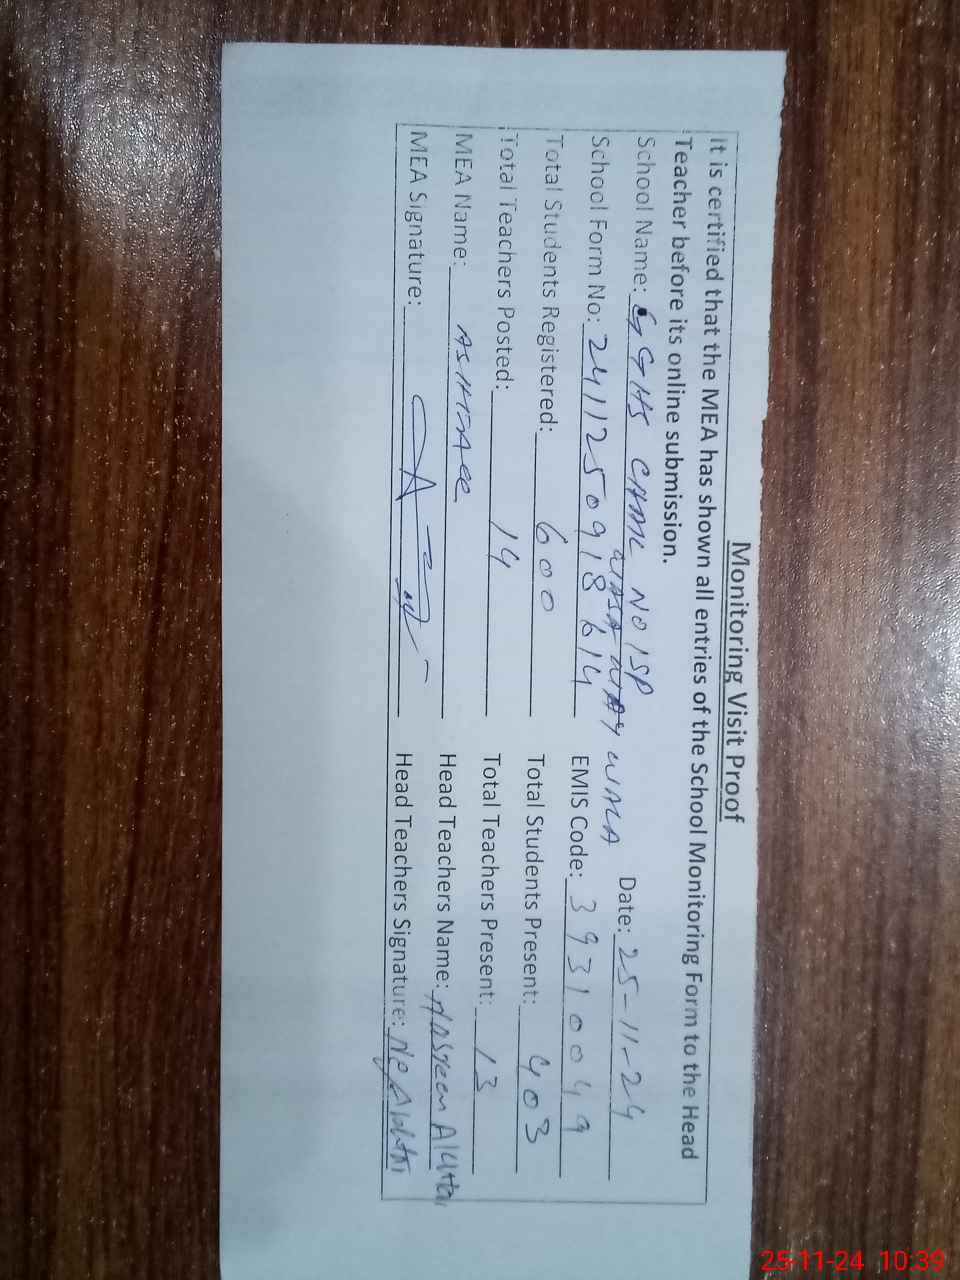 Monitoring Visit Proof
It is certified that the MEA has shown all entries of the School Monitoring Form to the Head
Teacher before its online submission.
School Name: GGHS CHAK NO 1SP Date: 25-11-24
School Form No: 2411250918614 EMIS Code: 39310049
Total Students Registered: 600 Total Students Present: 403
Total Teachers Posted: 14 Total Teachers Present: 13
MEA Name: Head Teachers Name: Akhtar
MEA Signature: Head Teachers Signature:
25-11-24 10:39